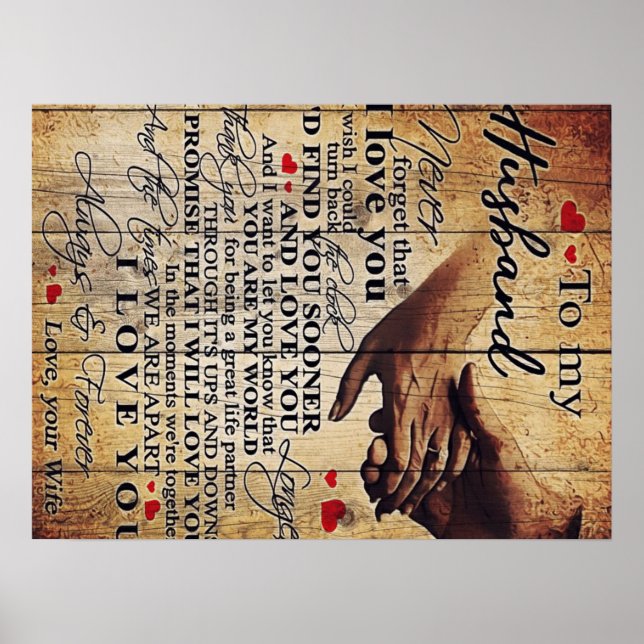 To my
Husband
Never
forget that
I love you
wish I could
turn back the clock
D FIND YOU SOONER
AND LOVE YOU Longe
And I want to let you know that
YOU ARE MY WORLD
Thank you for being a great life partner
THROUGH ITS UPS AND DOWN
PROMISE THAT I WILL LOVE YOU
In the moments we're together
And the times WE ARE APART
I LOVE YOU
Always & Forever
Love, your Wife